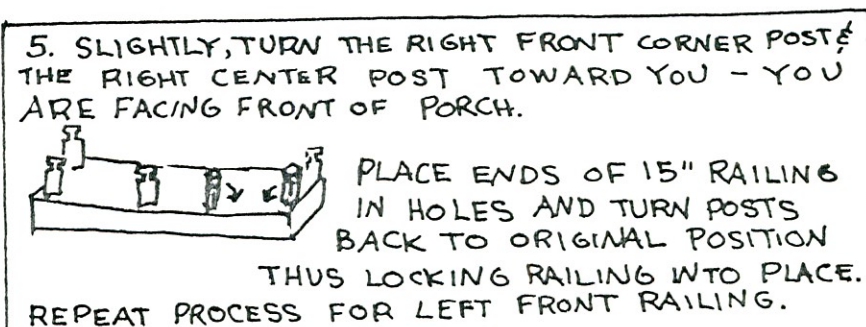 5. SLIGHTLY, TURN THE RIGHT FRONT CORNER POST &
THE RIGHT CENTER POST TOWARD YOU - YOU
ARE FACING FRONT OF PORCH.
PLACE ENDS OF 15" RAILING
IN HOLES AND TURN POSTS
BACK TO ORIGINAL POSITION
THUS LOCKING RAILING INTO PLACE.
REPEAT PROCESS FOR LEFT FRONT RAILING.